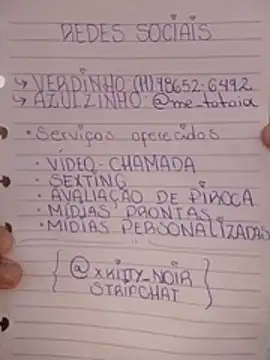 REDES SOCIAIS
→ VERDINHO (11) 98652-6492
→ AZULZINHO @me_totoia
• Serviços oferecidos
• VÍDEO-CHAMADA
• SEXTING
• AVALIAÇÃO DE PIROCA
• MÍDIAS PRONTAS
• MÍDIAS PERSONALIZADAS
{ @xKITTY_NOIR }
STRIPCHAT